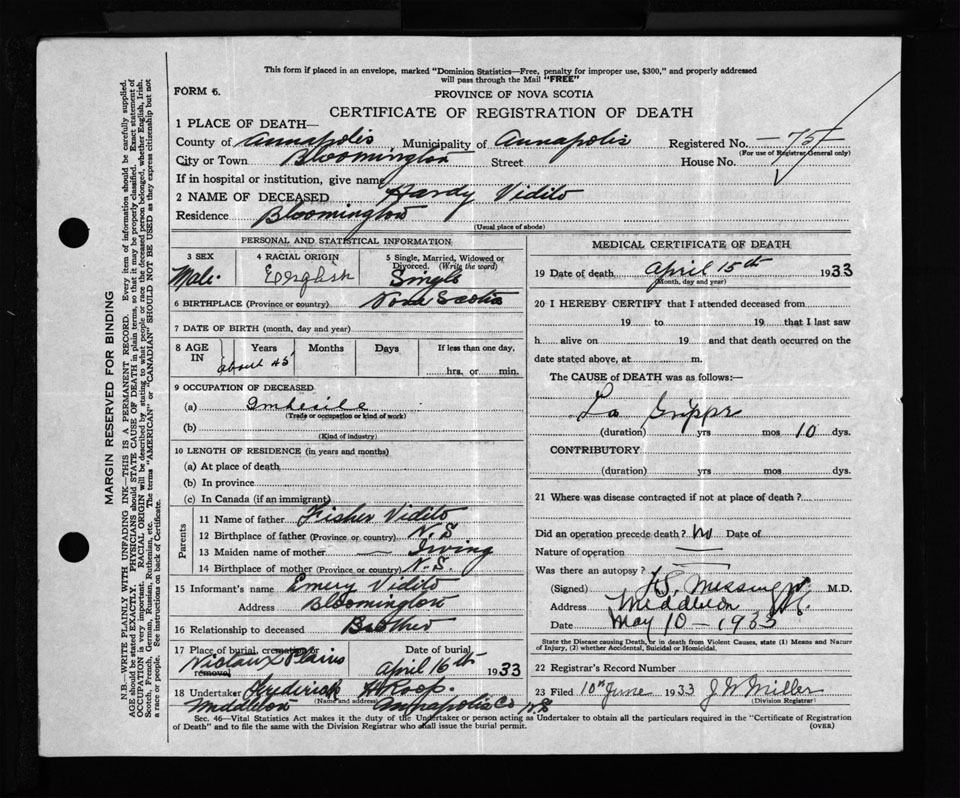 This form if placed in an envelope, marked "Dominion Statistics—Free, penalty for improper use, $300," and properly addressed
will pass through the Mail "FREE"
FORM 6.
PROVINCE OF NOVA SCOTIA
CERTIFICATE OF REGISTRATION OF DEATH
1 PLACE OF DEATH—
County of Annapolis Municipality of Annapolis Registered No. 75
(For use of Registrar General only)
City or Town Bloomington Street House No.
If in hospital or institution, give name
2 NAME OF DECEASED Hardy Vidito
Residence Bloomington
(Usual place of abode)
PERSONAL AND STATISTICAL INFORMATION
3 SEX 4 RACIAL ORIGIN 5 Single, Married, Widowed or
Divorced. (Write the word)
Male English Single
6 BIRTHPLACE (Province or country) Nova Scotia
7 DATE OF BIRTH (month, day and year)
8 AGE IN Years Months Days If less than one day,
about 45 hrs. or min.
9 OCCUPATION OF DECEASED
(a) Imbecile
(Trade or occupation or kind of work)
(b)
(Kind of industry)
10 LENGTH OF RESIDENCE (in years and months)
(a) At place of death
(b) In province
(c) In Canada (if an immigrant)
Parents
11 Name of father Fisher Vidito
12 Birthplace of father (Province or country) N.S
13 Maiden name of mother — Irving
14 Birthplace of mother (Province or country) N.S.
15 Informant's name Emery Vidito
Address Bloomington
16 Relationship to deceased Brother
17 Place of burial, cremation or removal Date of burial
Nictaux Plains April 16th 1933
18 Undertaker Frederick H Roop.
(Name and address)
Middleton Annapolis Co NS
MEDICAL CERTIFICATE OF DEATH
19 Date of death April 15th 1933
(Month, day and year)
20 I HEREBY CERTIFY that I attended deceased from
19 to 19 that I last saw
h alive on 19 and that death occurred on the
date stated above, at m.
The CAUSE of DEATH was as follows:—
La Grippe
(duration) yrs mos 10 dys.
CONTRIBUTORY
(duration) yrs mos dys.
21 Where was disease contracted if not at place of death?
Did an operation precede death? No Date of
Nature of operation
Was there an autopsy?
(Signed) Messinger M.D.
Address Middleton
Date May 10 – 1933
State the Disease causing Death, or in death from Violent Causes, state (1) Means and Nature
of Injury, (2) whether Accidental, Suicidal or Homicidal.
22 Registrar's Record Number
23 Filed 10th June 1933 J W Miller
(Division Registrar)
Sec. 46—Vital Statistics Act makes it the duty of the Undertaker or person acting as Undertaker to obtain all the particulars required in the "Certificate of Registration
of Death" and to file the same with the Division Registrar who shall issue the burial permit. (OVER)
MARGIN RESERVED FOR BINDING
N.B.—WRITE PLAINLY WITH UNFADING INK—THIS IS A PERMANENT RECORD. Every item of information should be carefully supplied.
AGE should be stated EXACTLY. PHYSICIANS should STATE CAUSE OF DEATH in plain terms, so that it may be properly classified. Exact statement of
OCCUPATION is very important. RACIAL ORIGIN will be described by stating to what people or race the deceased person belonged, whether English, Irish,
Scotch, French, German, Russian, Ruthenian, etc. The terms "AMERICAN" or "CANADIAN" SHOULD NOT BE USED as they express citizenship but not
a race or people. See instructions on back of Certificate.